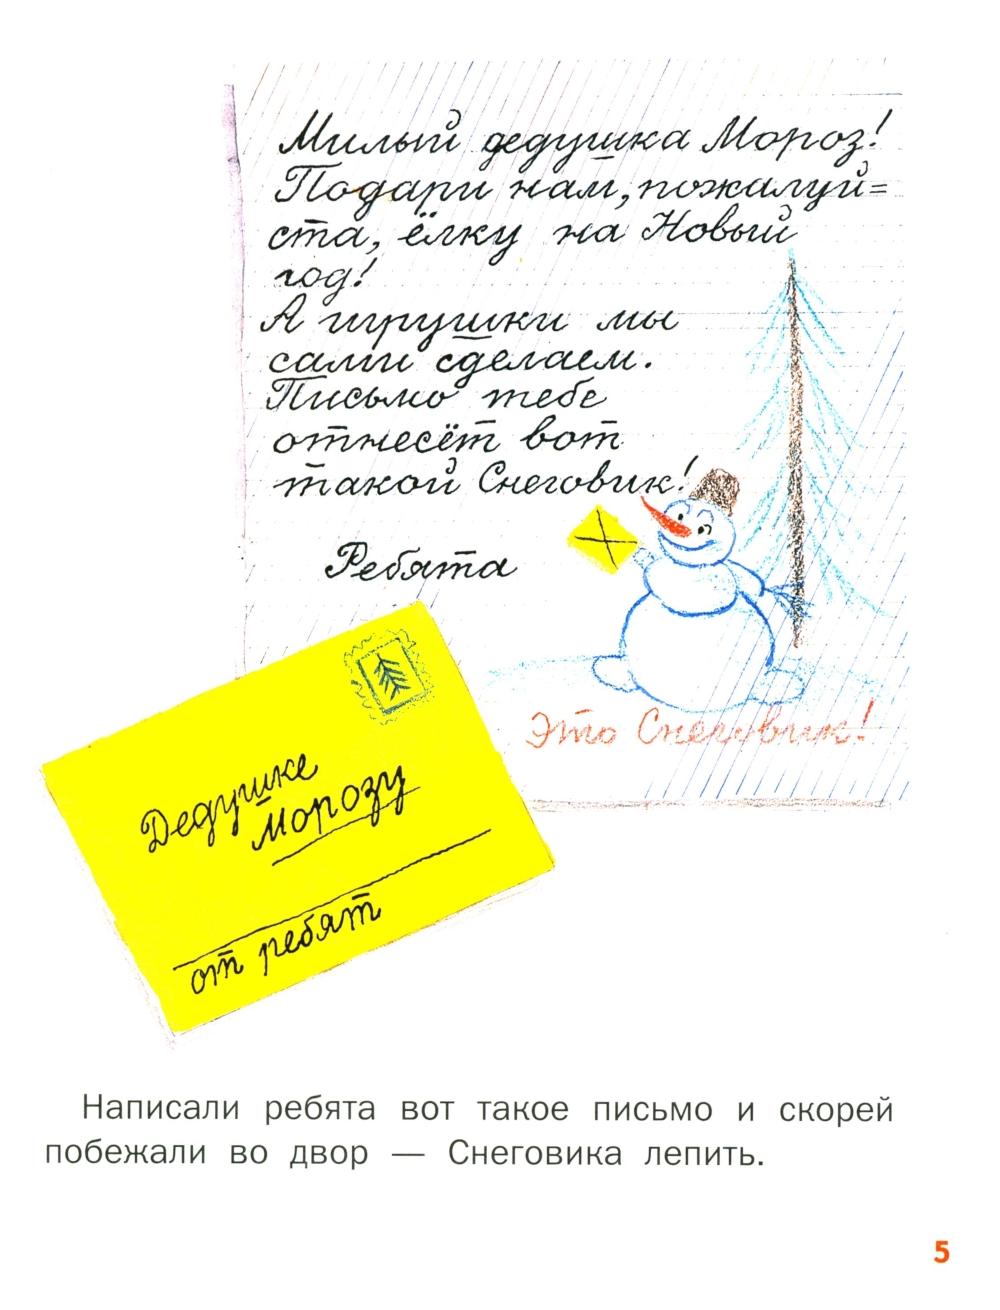 Милый дедушка Мороз!
Подари нам, пожалуй=
ста, ёлку на Новый
год!
А игрушки мы
сами сделаем.
Письмо тебе
отнесёт вот
такой Снеговик!
Ребята
Это Снеговик!
Дедушке
Морозу
от ребят
Написали ребята вот такое письмо и скорей
побежали во двор — Снеговика лепить.
5